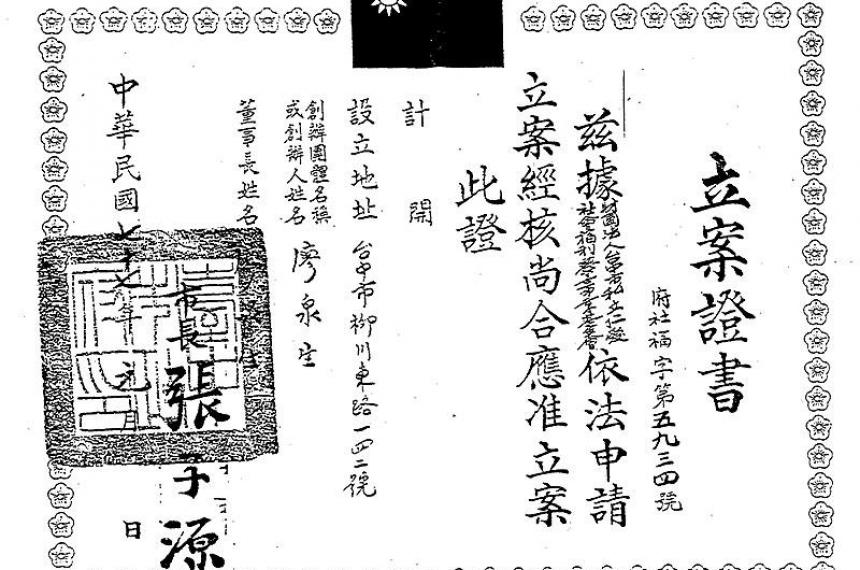 立案證書
府社福字第五九三四號
茲據財團法人台中市私立仁愛社會福利慈善事業基金會依法申請
立案經核尚合應准立案
此證
計開
設立地址 台中市柳川東路一四二號
創辦團體名稱
或創辦人姓名 廖泉生
董事長姓名
市長張子源
中華民國七十七年元月 日